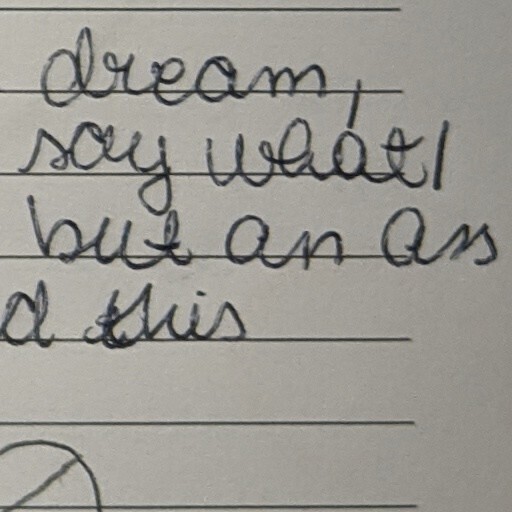 dream,
say what
but an ass
d this